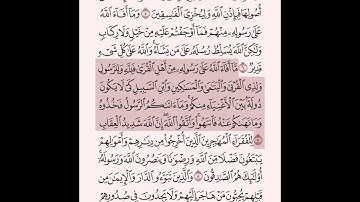 أُصُولِهَا فَبِإِذْنِ ٱللَّهِ وَلِيُخْزِىَ ٱلْفَٰسِقِينَ ۝٥ وَمَآ أَفَآءَ ٱللَّهُ
عَلَىٰ رَسُولِهِۦ مِنْهُمْ فَمَآ أَوْجَفْتُمْ عَلَيْهِ مِنْ خَيْلٍ وَلَا رِكَابٍ
وَلَٰكِنَّ ٱللَّهَ يُسَلِّطُ رُسُلَهُۥ عَلَىٰ مَن يَشَآءُ ۚ وَٱللَّهُ عَلَىٰ كُلِّ شَىْءٍ
قَدِيرٌ ۝٦ مَّآ أَفَآءَ ٱللَّهُ عَلَىٰ رَسُولِهِۦ مِنْ أَهْلِ ٱلْقُرَىٰ فَلِلَّهِ وَلِلرَّسُولِ
وَلِذِى ٱلْقُرْبَىٰ وَٱلْيَتَٰمَىٰ وَٱلْمَسَٰكِينِ وَٱبْنِ ٱلسَّبِيلِ كَىْ لَا يَكُونَ
دُولَةًۢ بَيْنَ ٱلْأَغْنِيَآءِ مِنكُمْ ۚ وَمَآ ءَاتَىٰكُمُ ٱلرَّسُولُ فَخُذُوهُ
وَمَا نَهَىٰكُمْ عَنْهُ فَٱنتَهُوا۟ ۚ وَٱتَّقُوا۟ ٱللَّهَ ۖ إِنَّ ٱللَّهَ شَدِيدُ ٱلْعِقَابِ
۝٧ لِلْفُقَرَآءِ ٱلْمُهَٰجِرِينَ ٱلَّذِينَ أُخْرِجُوا۟ مِن دِيَٰرِهِمْ وَأَمْوَٰلِهِمْ
يَبْتَغُونَ فَضْلًا مِّنَ ٱللَّهِ وَرِضْوَٰنًا وَيَنصُرُونَ ٱللَّهَ وَرَسُولَهُۥٓ ۚ
أُو۟لَٰٓئِكَ هُمُ ٱلصَّٰدِقُونَ ۝٨ وَٱلَّذِينَ تَبَوَّءُو ٱلدَّارَ وَٱلْإِيمَٰنَ مِن
قَبْلِهِمْ يُحِبُّونَ مَنْ هَاجَرَ إِلَيْهِمْ وَلَا يَجِدُونَ فِى صُدُورِهِمْ